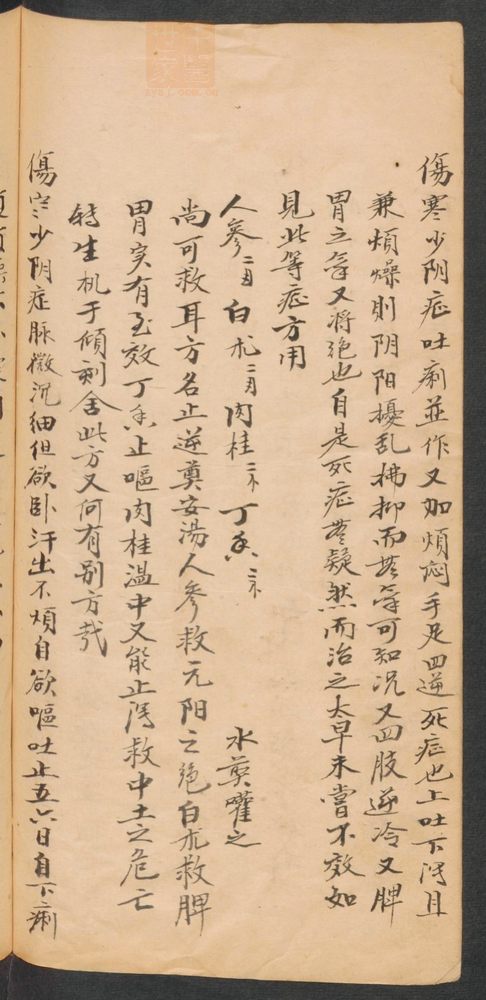 傷寒少阴症吐痢並作又加煩悶手足四逆死症也上吐下泻且
兼煩燥則阴阳擾乱拂抑而無氣可知况又四肢逆冷又脾
胃之氣又将绝也自是死症無疑然而治之大早未嘗不效如
見此等症方用
人參二両 白朮二両 肉桂二不 丁香二不 水煎灌之
尚可救耳方名止逆奠安湯人參救元阳之绝白朮救脾
胃実有至效丁香止嘔肉桂温中又能止泻救中土之危亡
转生机于傾刻舍此方又何有别方哉
傷寒少阴症脉微沉细但欲卧汗出不煩自欲嘔吐止五六日自下痢